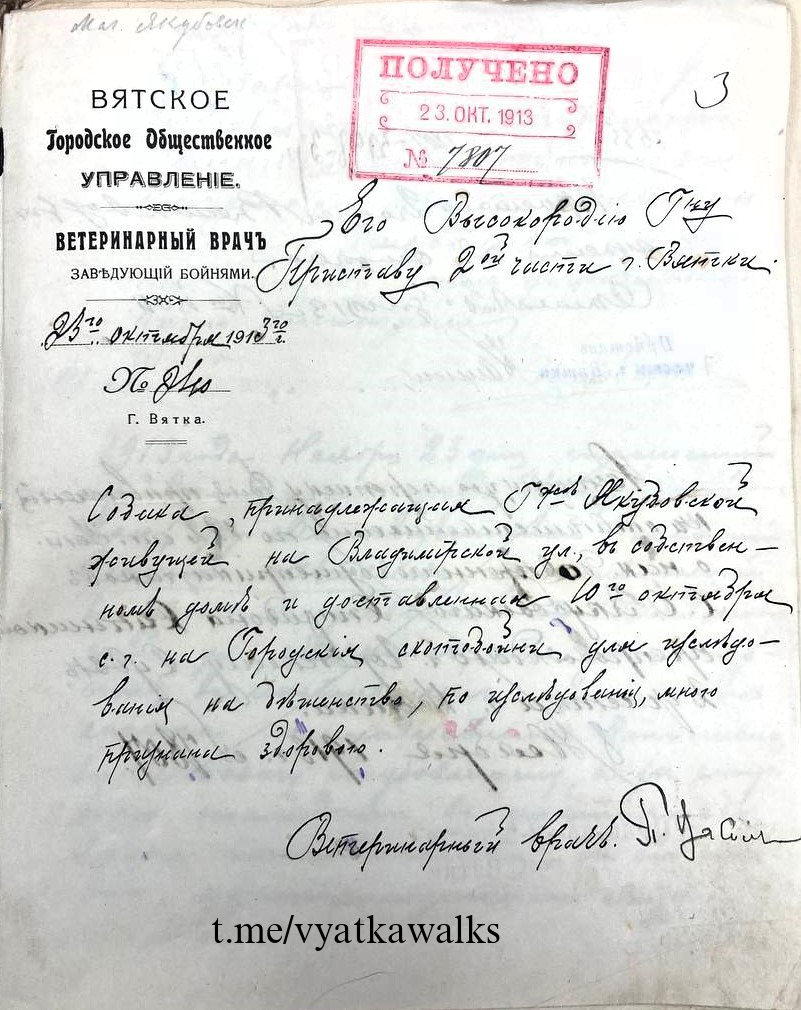 Маг. Якубовск
ПОЛУЧЕНО
23. ОКТ. 1913
№ 7807
3
ВЯТСКОЕ
Городское Общественное
УПРАВЛЕНІЕ.
ВЕТЕРИНАРНЫЙ ВРАЧЪ
ЗАВѢДУЮЩІЙ БОЙНЯМИ.
23го октября 1913го г.
№
Г. Вятка.
Его Высокородію Гну
Приставу 2ой части г. Вятки.
Собака, принадлежащая Гжѣ Якубовской
живущей на Владимірской ул., въ собствен-
номъ домѣ и доставленная 10го октября
с. г. на Городскія скотобойни для изслѣдо-
ванія на бѣшенство, по изслѣдованіи, мною
признана здоровою.
Ветеринарный врачъ. П.
t.me/vyatkawalks